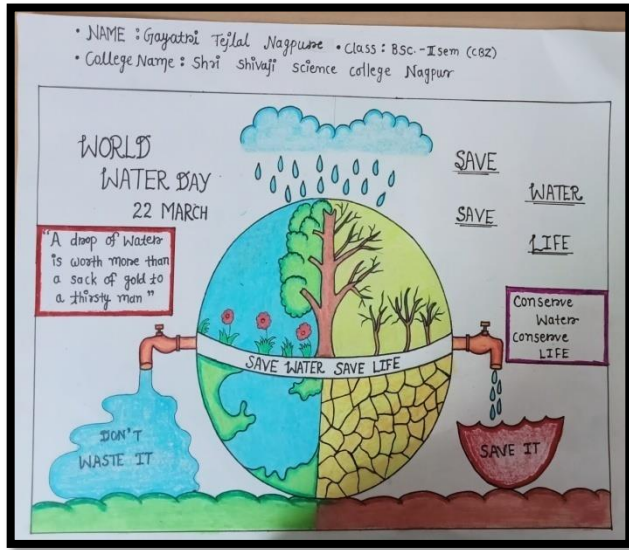 • NAME : Gayatri Tejlal Nagpure • Class : BSC.-II sem (CBZ)
• College Name : Shri Shivaji Science college Nagpur
WORLD
WATER DAY
22 MARCH
"A drop of water
is worth more than
a sack of gold to
a thirsty man"
SAVE
WATER
SAVE
LIFE
Conserve
Water
Conserve
LIFE
SAVE WATER SAVE LIFE
DON'T
WASTE IT
SAVE IT